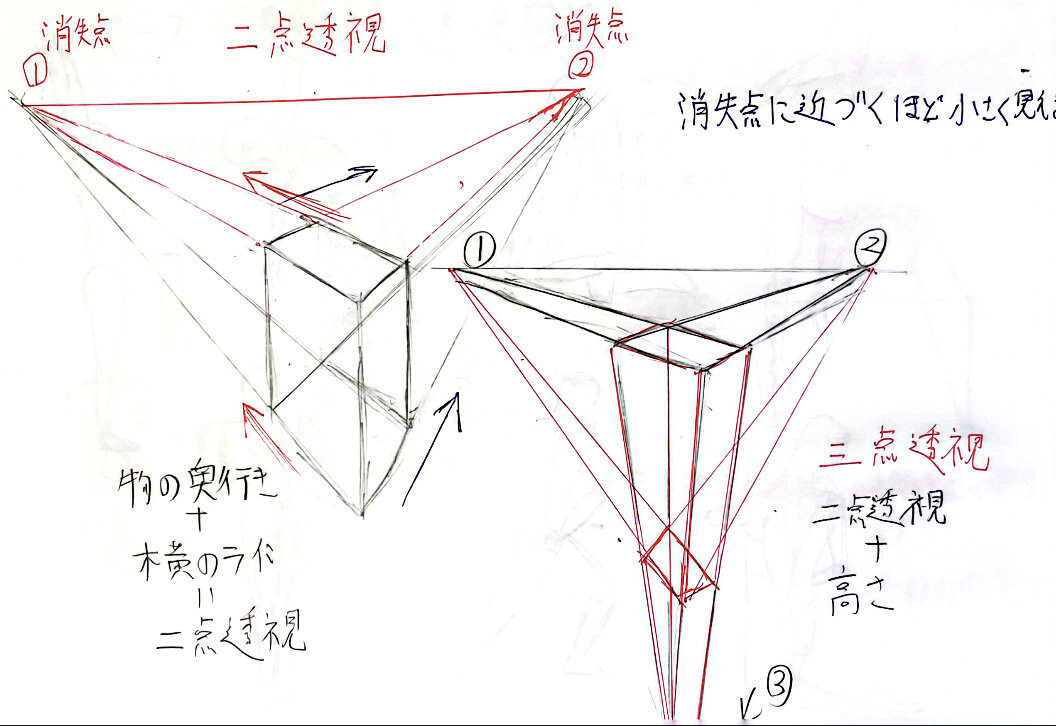 消失点
二点透視
消失点
①
②
消失点に近づくほど小さく見え
①
②
物の奥行き
+
横のライン
=
二点透視
三点透視
二点透視
+
高さ
③